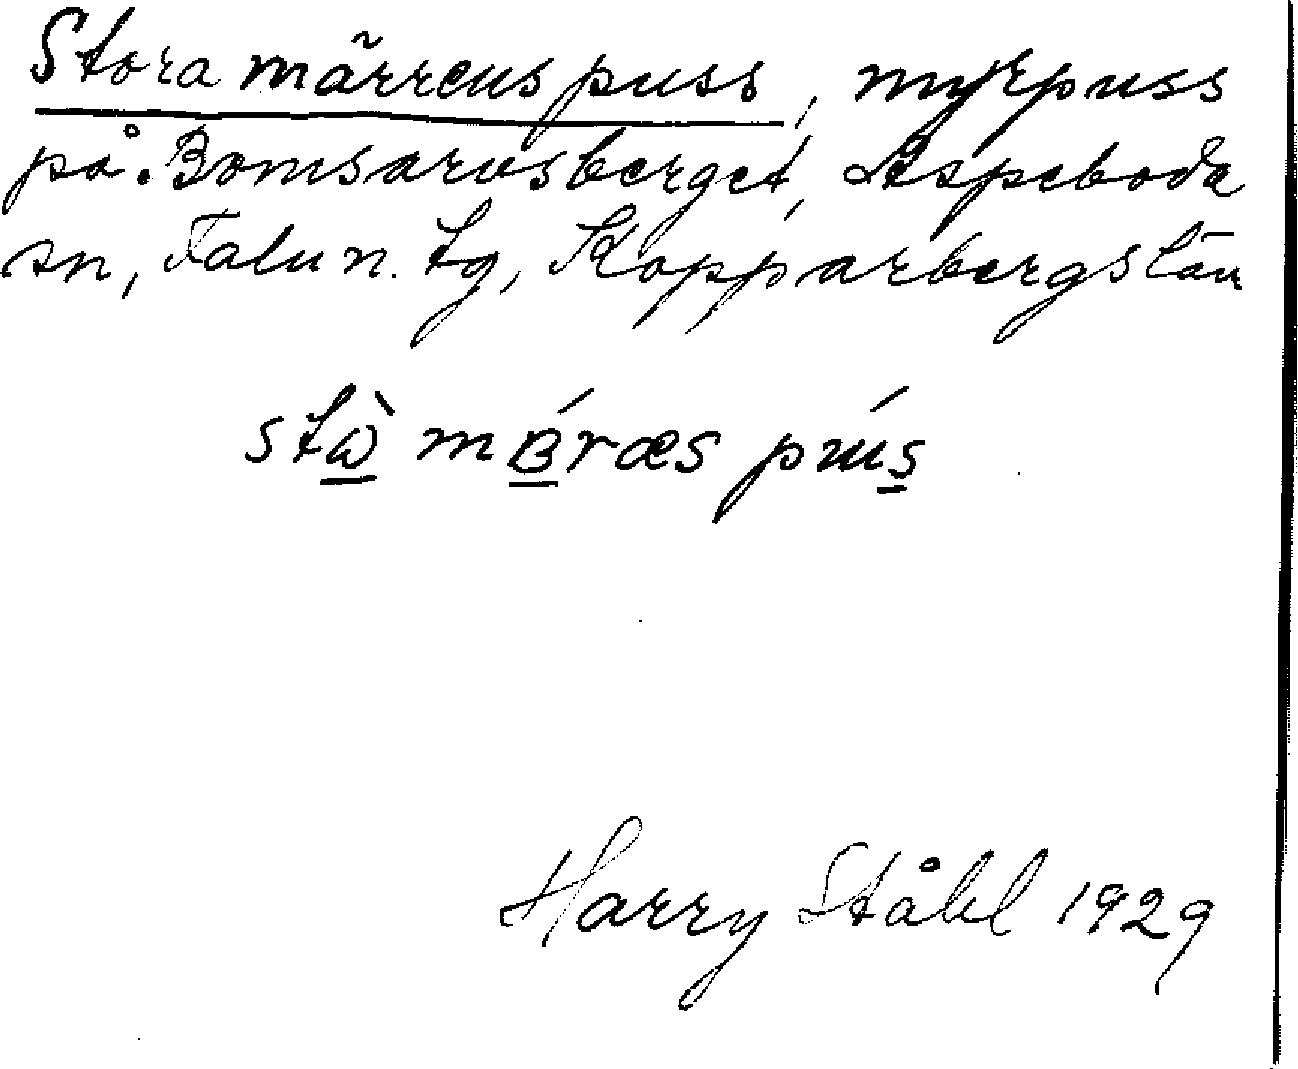 Stora märrens puss, myrpuss
på Bomsarvsberget, Aspeboda
sn, Falu n. tg, Kopparbergs län
stὼ mɞ́ræs pús
Harry Ståhl 1929